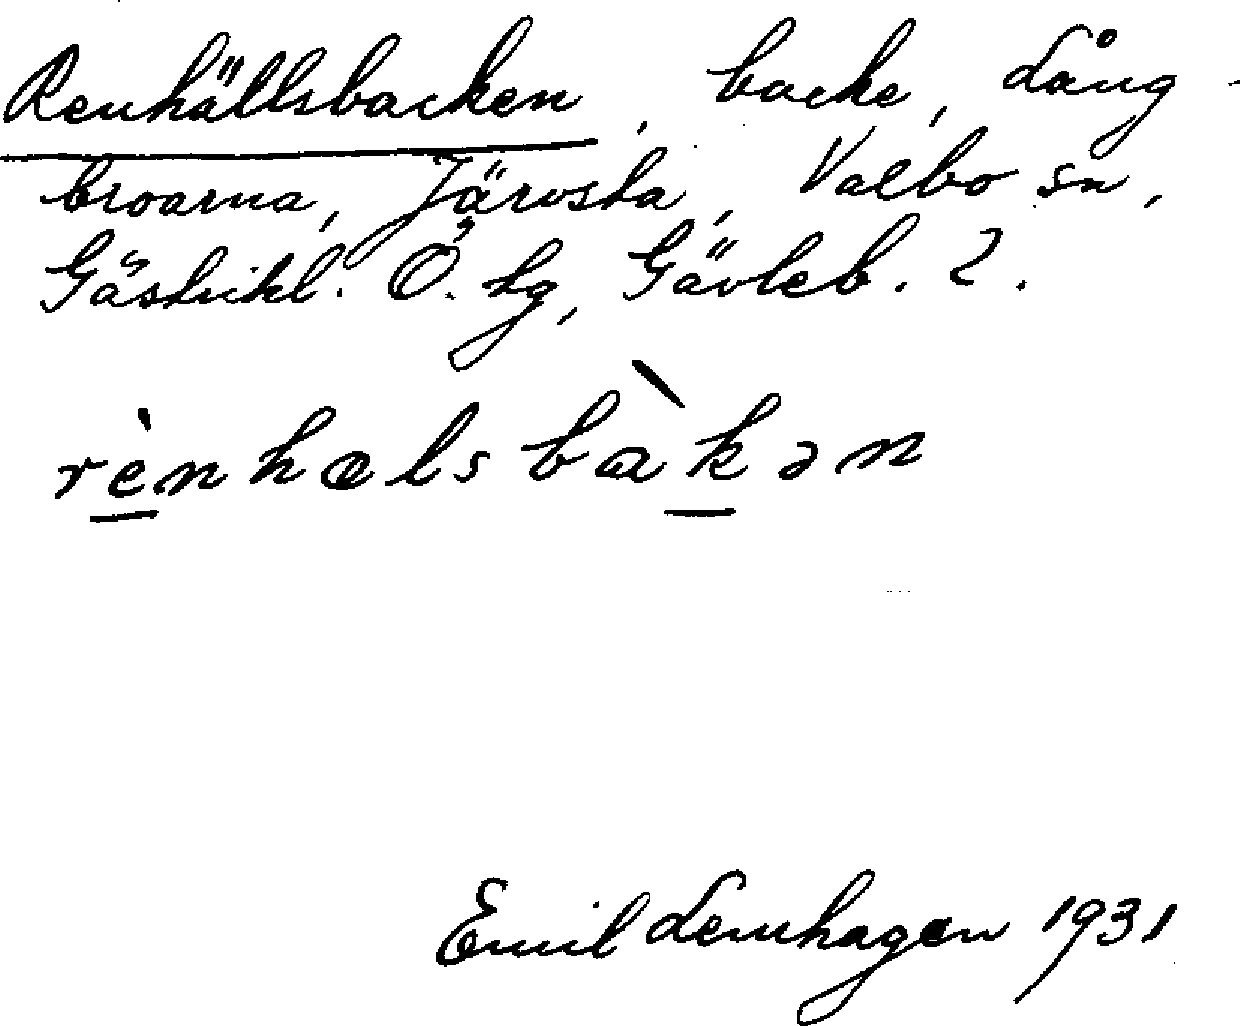 Renhällsbacken, backe, Lång-
broarna, Järvsta, Valbo sn,
Gästrikl. Ö. tg, Gävleb. l.
rènhælsbàkən
Emil Lenhagen 1931